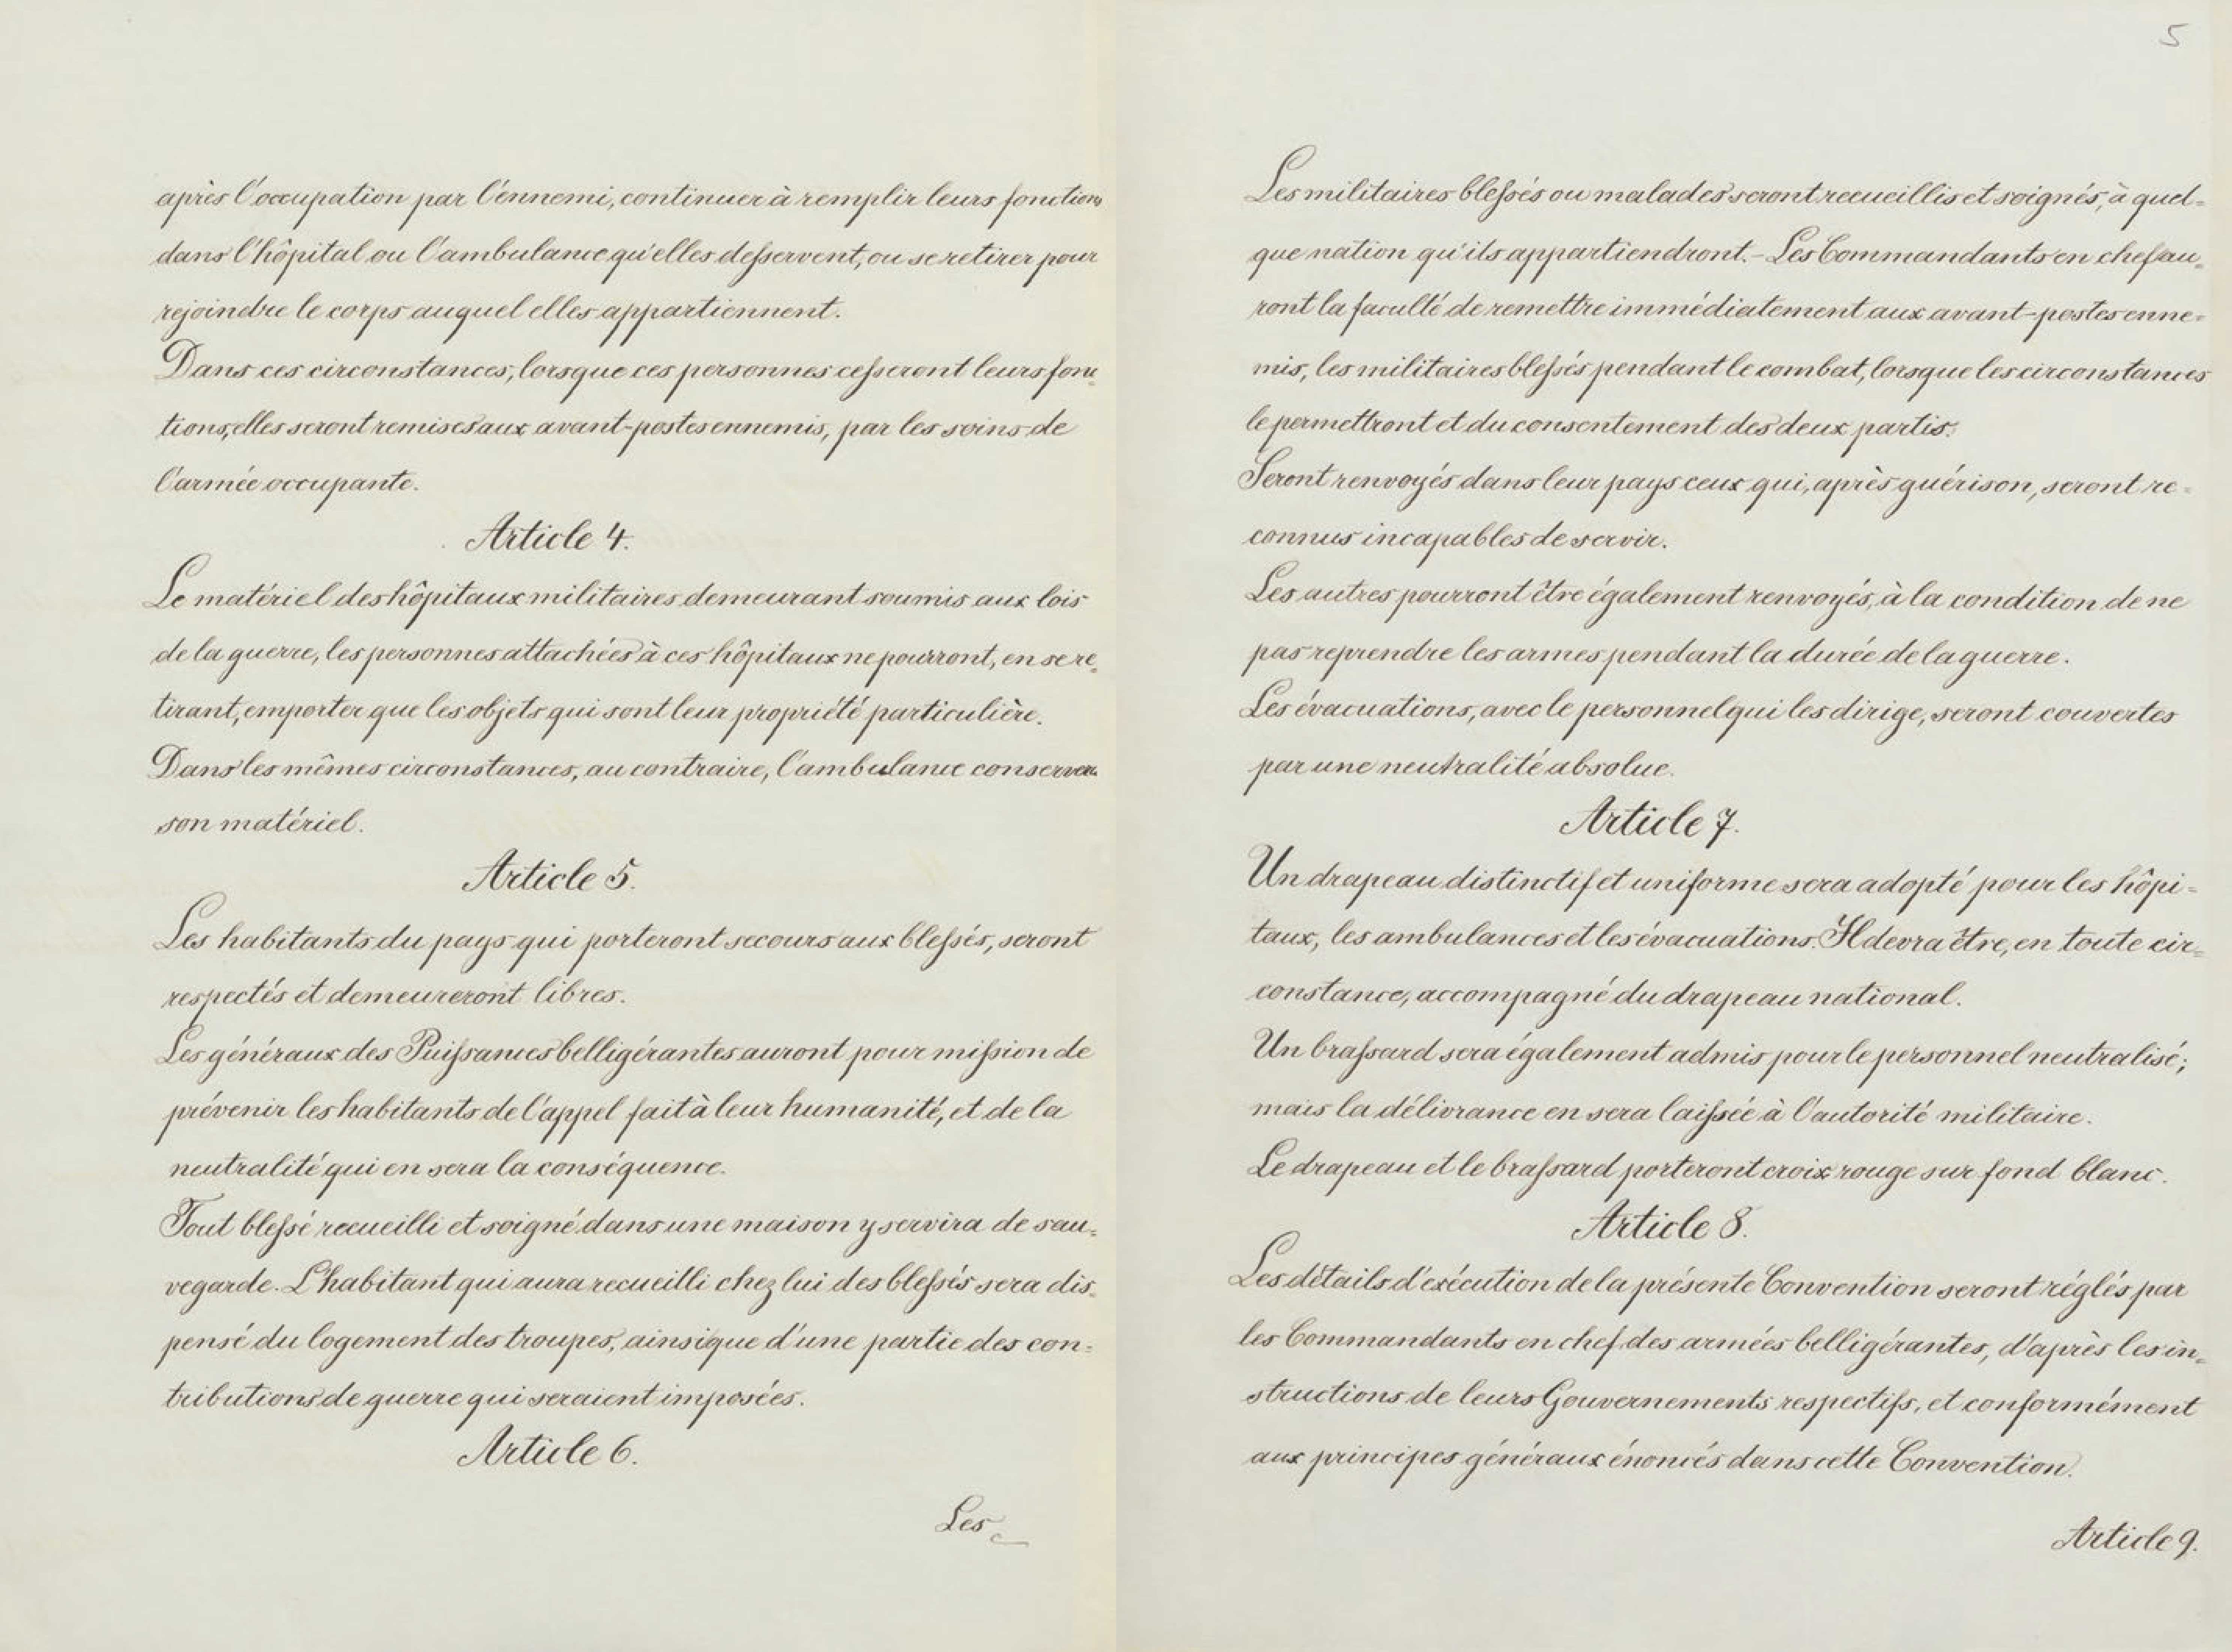 après l'occupation par l'ennemi, continuer à remplir leurs fonctions
dans l'hôpital ou l'ambulance qu'elles desservent, ou se retirer pour
rejoindre le corps auquel elles appartiennent.
Dans ces circonstances, lorsque ces personnes cesseront leurs fonc=
tions, elles seront remises aux avant-postes ennemis, par les soins de
l'armée occupante.
Article 4.
Le matériel des hôpitaux militaires demeurant soumis aux lois
de la guerre, les personnes attachées à ces hôpitaux ne pourront, en se re=
tirant, emporter que les objets qui sont leur propriété particulière.
Dans les mêmes circonstances, au contraire, l'ambulance conservera
son matériel.
Article 5.
Les habitants du pays qui porteront secours aux blessés, seront
respectés et demeureront libres.
Les généraux des Puissances belligérantes auront pour mission de
prévenir les habitants de l'appel fait à leur humanité, et de la
neutralité qui en sera la conséquence.
Tout blessé recueilli et soigné dans une maison y servira de sau=
vegarde. L'habitant qui aura recueilli chez lui des blessés sera dis=
pensé du logement des troupes, ainsi que d'une partie des con=
tributions de guerre qui seraient imposées.
Article 6.
Les
5
Les militaires blessés ou malades seront recueillis et soignés, à quel=
que nation qu'ils appartiendront. - Les Commandants en chef au=
ront la faculté de remettre immédiatement aux avant-postes enne=
mis, les militaires blessés pendant le combat, lorsque les circonstances
le permettront et du consentement des deux partis.
Seront renvoyés dans leur pays ceux qui, après guérison, seront re=
connus incapables de servir.
Les autres pourront être également renvoyés, à la condition de ne
pas reprendre les armes pendant la durée de la guerre.
Les évacuations, avec le personnel qui les dirige, seront couvertes
par une neutralité absolue.
Article 7.
Un drapeau distinctif et uniforme sera adopté pour les hôpi=
taux, les ambulances et les évacuations. Il devra être, en toute cir=
constance, accompagné du drapeau national.
Un brassard sera également admis pour le personnel neutralisé;
mais la délivrance en sera laissée à l'autorité militaire.
Le drapeau et le brassard porteront croix rouge sur fond blanc.
Article 8.
Les détails d'exécution de la présente Convention seront réglés par
les Commandants en chef des armées belligérantes, d'après les in=
structions de leurs Gouvernements respectifs, et conformément
aux principes généraux énoncés dans cette Convention.
Article 9.